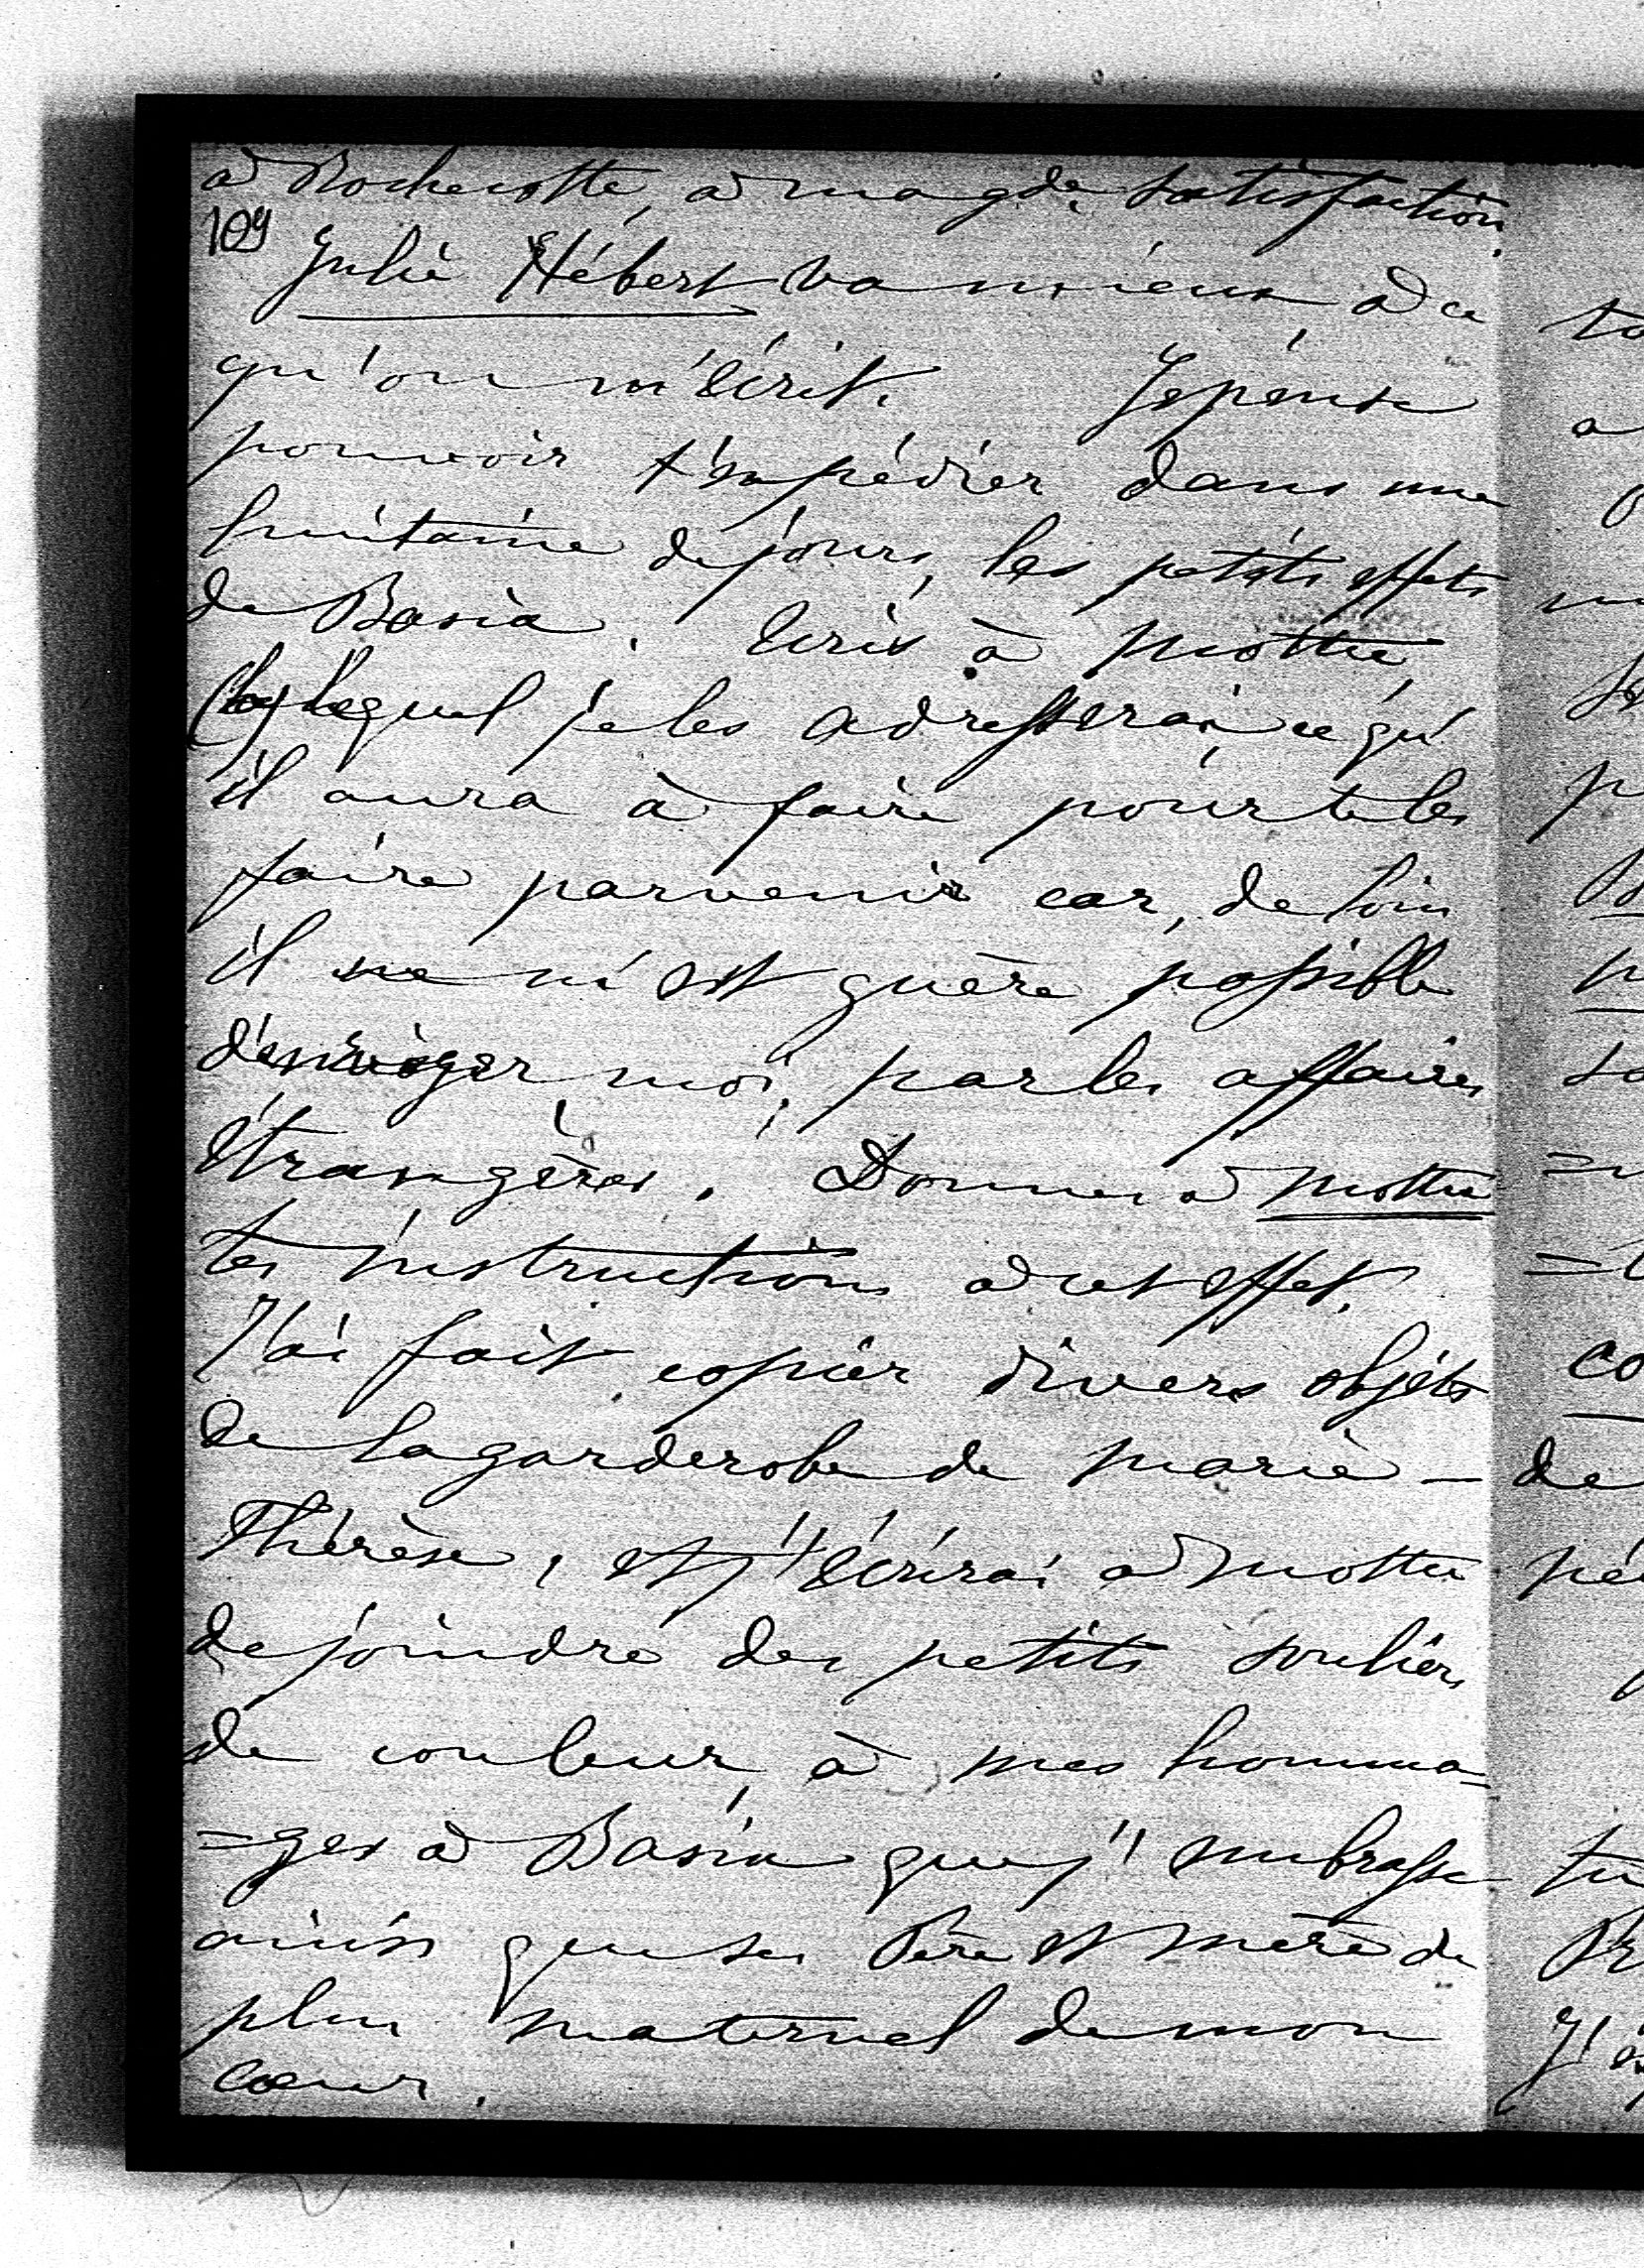 à Rochecotte, à ma gde. satisfaction.
109
Julie Hébert va mieux à ce
qu'on m'écrit. Je pense
pouvoir t'expédier dans une
huitaine de jours, les petits effets
de Basia. Ecris à Motte
lequel je les adresserai ce qu'
il aura à faire pour te les
faire parvenir car, de loin
il ne m'est guère possible
moi, par les affaires
étrangères. Donne à Motte
tes instructions à cet effet.
J'ai fait copier divers objets
de la garderobe de Marie-
Thérèse, et j'écrirai à Motte
de joindre des petits souliers
de couleur, à mes homma-
=ges à Basia que j'embrasse
ainsi que ses Père et Mère du
plus maternel de mon
coeur.